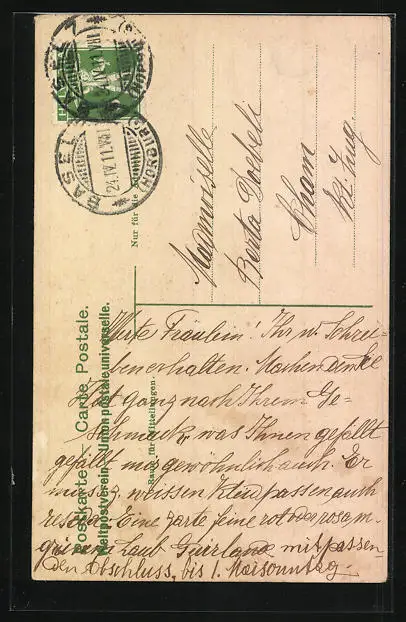 Postkarte. Carte Postale.
Weltpostverein. Union postale universelle.
Nur für die
Raum für Mitteilungen.
BASEL
24.IV.11.VIII
HORBURG
BASEL
24.IV.11.VIII
Mademoiselle
Berta Doebeli
Cham
Kt. Zug.
Werte Fräulein! Ihr w. Schrei-
ben erhalten. Machen
Hut ganz nach Ihrem Ge-
schmack, was Ihnen gefällt
gefällt mir gewöhnlich auch. Er
muss z. weissen Kleid passen auch
Eine zarte feine rot od. rosa m.
grünem Laub Guirlande mit passen-
den Abschluss, bis 1. Maisonntag.